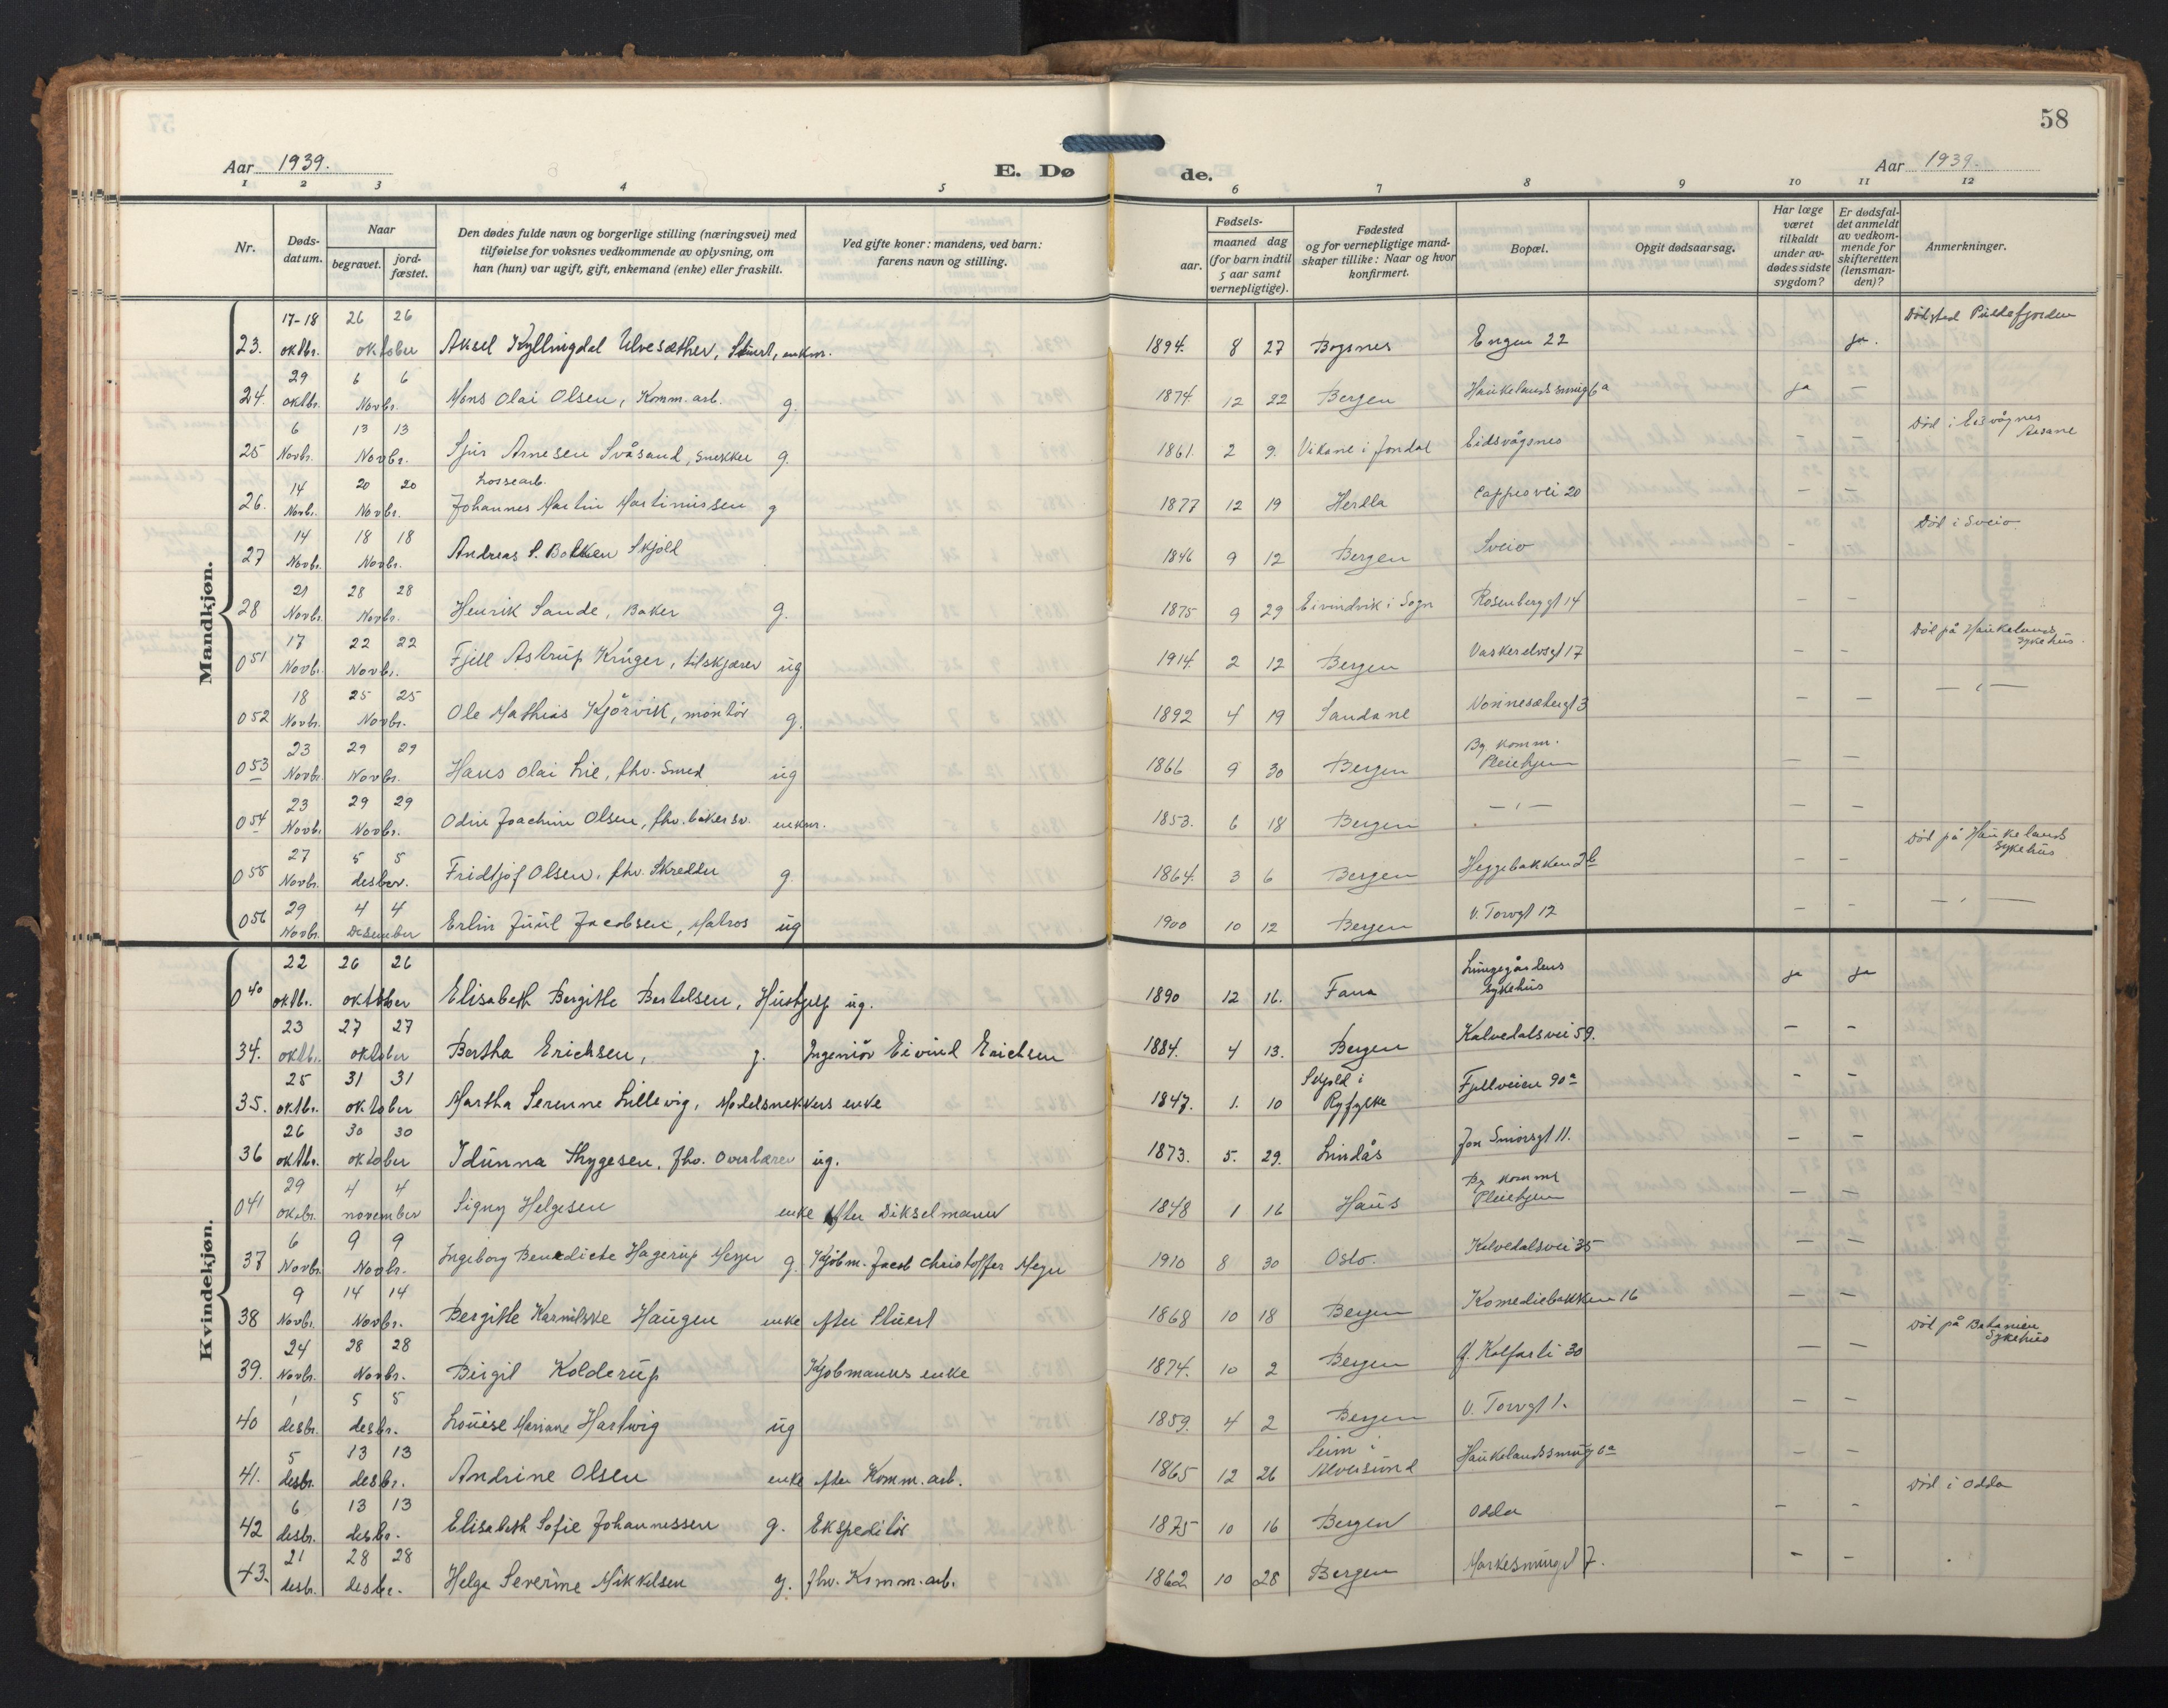 58
Aar 1939.
E. Dø de.
Aar 1939.
1 2 3 4 5 6 7 8 9 10 11 12
Nr.
Døds-
datum.
Naar
begravet.
jord-
fæstet.
Den dødes fulde navn og borgerlige stilling (næringsvei) med
tilføielse for voksnes vedkommende av oplysning, om
han (hun) var ugift, gift, enkemand (enke) eller fraskilt.
Ved gifte koner: mandens, ved barn:
farens navn og stilling.
Fødsels-
aar.
maaned dag
(for barn indtil
5 aar samt
vernepligtige).
Fødested
og for vernepligtige mand-
skaper tillike: Naar og hvor
konfirmert.
Bopæl.
Opgit dødsaarsag.
Har læge
været
tilkaldt
under av-
dødes sidste
sygdom?
Er dødsfal-
det anmeldt
av vedkom-
mende for
skifteretten
(lensman-
den)?
Anmerkninger.
Mandkjøn.
17-18 26 26 Dødsted Puddefjorden
23. oktbr. oktober Aksel Kyllingdal Ulvesæther, Stuert, enkm. 1894. 8 27 Bogsnes Engen 22 ja.
29 6 6
24. oktbr. Novbr. Mons Olai Olsen, Komm. arb. g. 1874. 12 22 Bergen Haukelandssmug 6a ja —
6 13 13 Død i Eidsvågnes
Aasane
25 Novbr. Novbr. Sjur Arnesen Svåsand, snekker g. 1861. 2 9. Vikane i Jondal Eidsvågsnes — —
14 20 20 Lossearb.
26. Novbr. Novbr. Johannes Martin Martinussen g 1877 12 19 Herdla Cappesvei 20 — —
14 18 18 Død i Sveio
27 Novbr. Novbr. Andreas S. Bakken Skjold 1846 9 12 Bergen Sveio —
21 28 28
28 Novbr. Novbr. Henrik Sande, Baker g. 1875 9 29 Eivindvik i Sogn Rosenberggt 14 — —
17 22 22 Død på Haukelands
Sykehus.
051 Novbr. Novbr. Fjell Astrup Krüger, tilskjærer ug 1914. 2 12 Bergen Vaskerelvsgt 17 — —
18 25 25 — " —
052 Novbr. Novbr. Ole Mathias Kjørvik, montør g. 1892 4 19 Sandane Nonnesætergt 3 — —
23 29 29 Bg. komm.
053 Novbr. Novbr. Hans Olai Lie, fhv. Smed ug 1866 9 30 Bergen Pleiehjem — —
23 29 29 — " —
054 Novbr. Novbr. Odin Joachim Olsen, fhv. bakersv. enkm. 1853. 6 18 Bergen — —
27 5 5 Død på Haukelands
Sykehus
055 Novbr. desber. Fridtjof Olsen, fhv. Skredder g. 1864. 3 6 Bergen Heggebakken 2b — —
29 4 4 — " —
056 Novbr. Desember Erlin Juul Jacobsen, Matros ug 1900 10 12 Bergen V. Torvgt 12 — —
Kvindekjøn.
22 26 26 Lungegårdens
040 oktbr. oktober Elisabeth Bergitte Bertelsen, Hushjelp ug. 1890 12 16. Fana Sykehus ja ja
23 27 27
34. oktbr. oktober Bertha Erichsen, g. Ingeniør Eivind Erichsen 1884. 4 13. Bergen Kalvedalsvei 59. — —
25 31 31
35. oktbr. oktober Martha Serenne Lillevig, Modelsnekkers enke 1847. 1. 10 i Ryfylke Fjellveien 90a — —
26 30 30
36 oktbr. oktober Idunna Thygesen, fhv. Overlærer ug. 1873. 5. 29. Lindås Jon Smørsgt 11. — —
29 4 4 Bg komm
041 oktbr. november Signy Helgesen enke efter Dikselmann 1848 1 16 Haus Pleiehjem — —
6 9 9
37 Novbr. Novbr. Ingeborg Benedicte Hagerup Meyer g. Kjøbm. Jacob Christoffer Meyer 1910 8 30 Oslo. Kalvedalsvei 35 — —
9 14 14
38 Novbr. Novbr. Bergitte Haugen enke efter Stuert 1868 10 18 Bergen Komediebakken 16 — —
24 28 28 Død på Betanien
Sykehus
39. Novbr. Novbr. Birgit Kolderup Kjøbmanns enke 1874. 10 2 Bergen Kalfarli 30 — —
1 5 5
40 desbr. desbr. Louise Mariane Hartwig ug 1859. 4 2 Bergen V. Torvgt 1. — —
5 13 13 Seim i
41. desbr. desbr. Andrine Olsen enke efter Komm. arb. 1865 12 26 Alversund Haukelandssmug 6a — —
6 13 13 Død i Odda
42 desbr. desbr. Elisabeth Sofie Johannessen g. Ekspeditør 1875 10 16 Bergen Odda — —
21 28 28
43. desbr. desbr. Helga Severine Mikkelsen g. fhv. Komm. arb. 1862 10 28 Bergen Markesmuget 7. — —